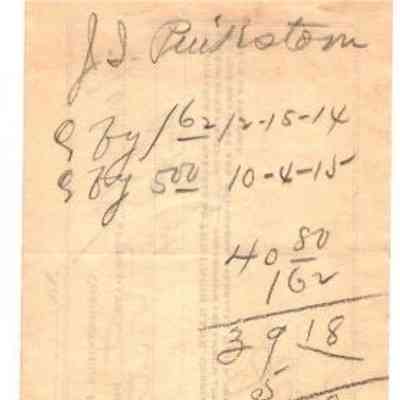 J. I. Pinkstom
By 162 12-15-14
By 500 10-4-15
40 80
1 62
39 18